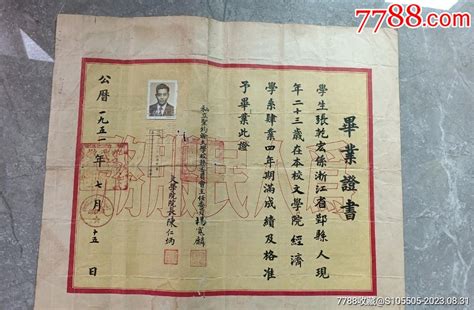 7788.com
畢業證書
學生張乾宏係浙江省鄞縣人現
年二十三歲在本校文學院經濟
學系肄業四年期滿成績及格准
予畢業此證
私立聖約翰大學校務委員會主任委員
文學院院長陳仁炳
公曆一九五一年七月十五日
為人民服務
7788-收藏@S105505-2023.08.31